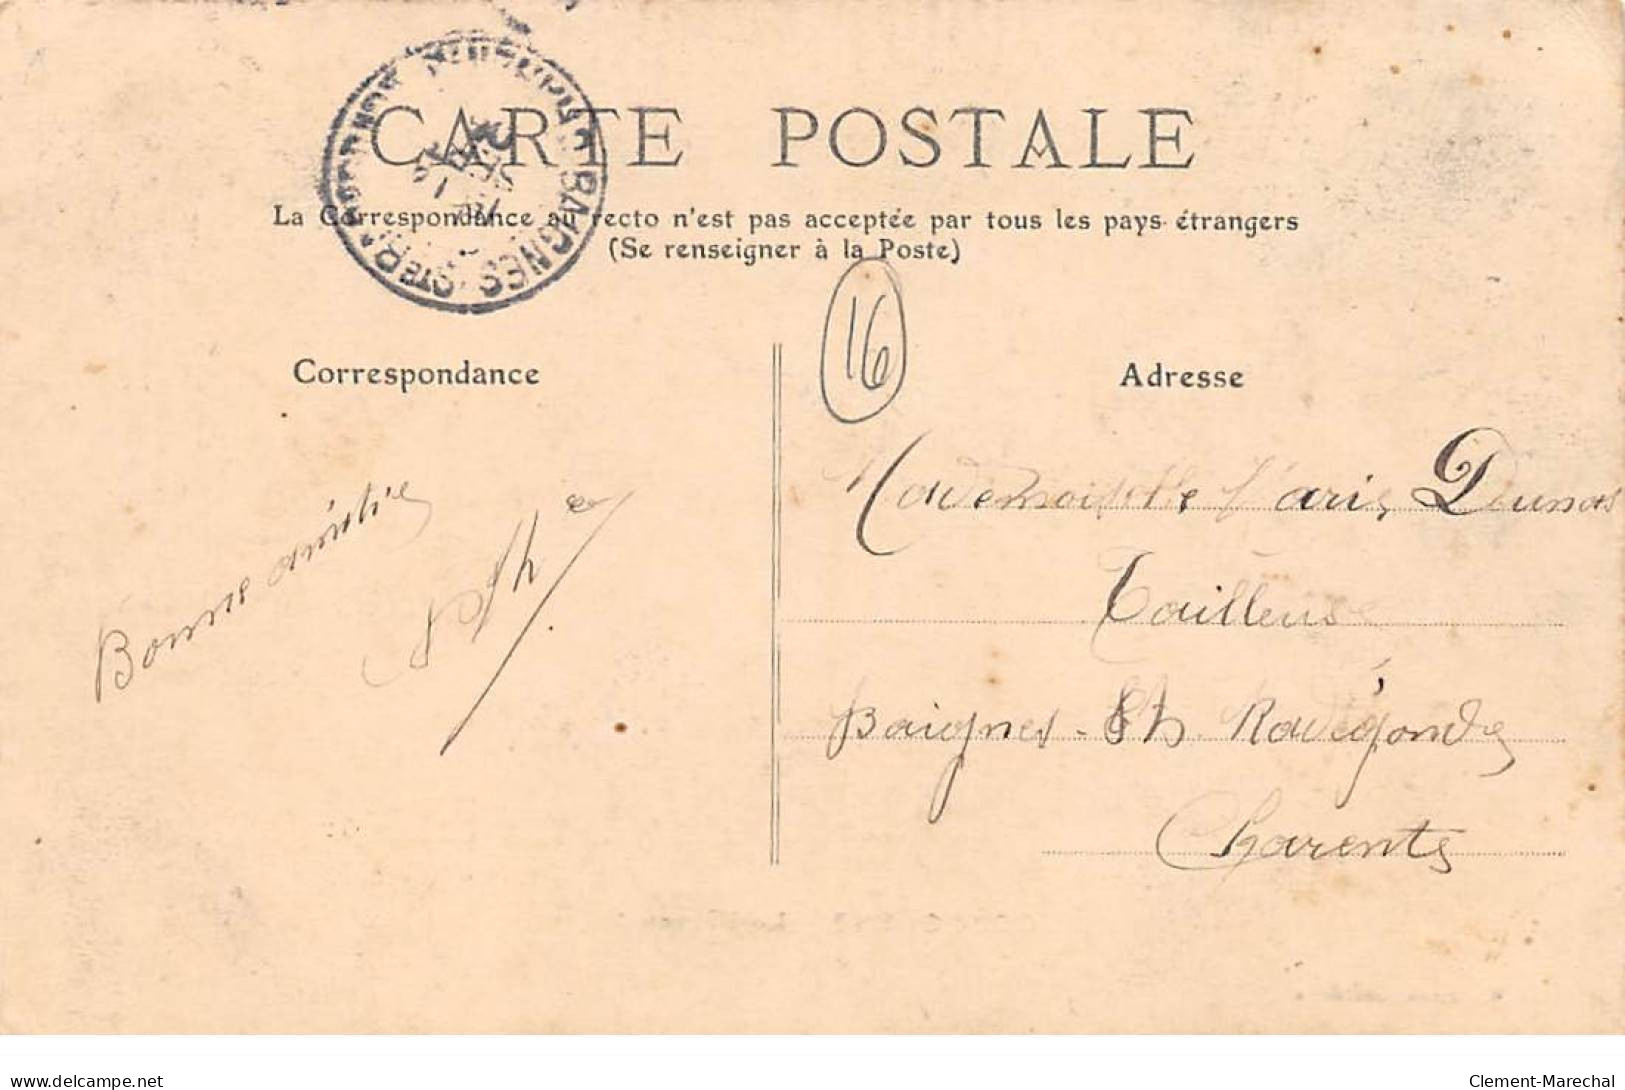 CARTE POSTALE
La Correspondance au recto n'est pas acceptée par tous les pays étrangers
(Se renseigner à la Poste)
BAIGNES-STE-R
16
Correspondance
Adresse
Bonne amitié
Mademoiselle
Tailleuse
Baignes - Ste Radégonde
Charente
delcampe.net
Clement-Marechal